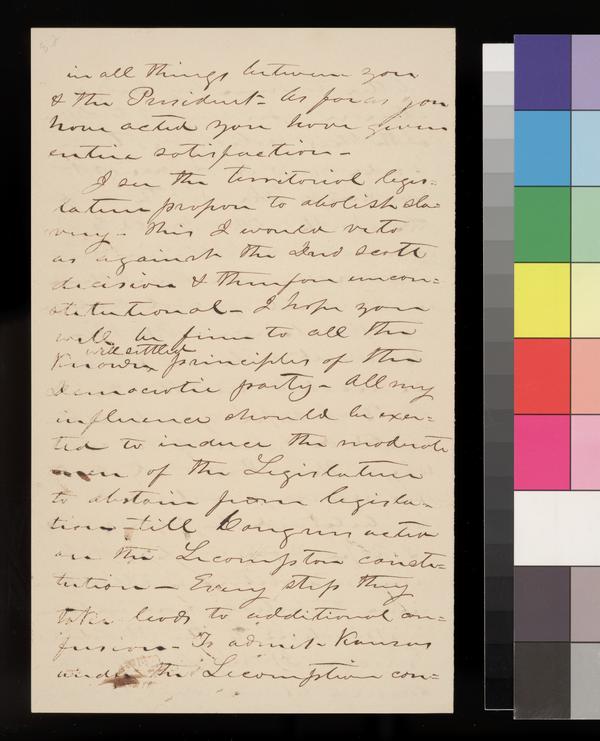 in all things between you
& the President – As far as you
have acted you have given
entire satisfaction –
I see the territorial legis=
lature propose to abolish sla=
very – this I would veto
as against the Dred Scott
decision & therefore uncon=
stitutional – I hope you
will be firm to all the
well settled
known principles of the
Democratic party – All my
influence should be exer=
ted to induce the moderate
men of the Legislature
to abstain from legisla=
tion till Congress acted
on the Lecompton consti=
tution – Every step they
take leads to additional con=
fusion – To admit Kansas
under the Lecompton con=